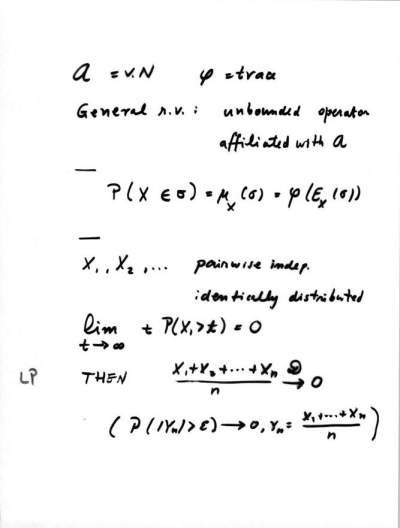 a = v.N   φ = trace
General r.v. : unbounded operator
affiliated with a
—
P(X ∈ σ) = μ_x(σ) = φ(E_x(σ))
—
X₁, X₂, ... pairwise indep.
identically distributed
lim_{t→∞} t P(X₁>t) = 0
LP THEN (X₁+X₂+⋯+Xₙ)/n →^𝒟 0
( P(|Yₙ|>ε) → 0, Yₙ = (X₁+⋯+Xₙ)/n )